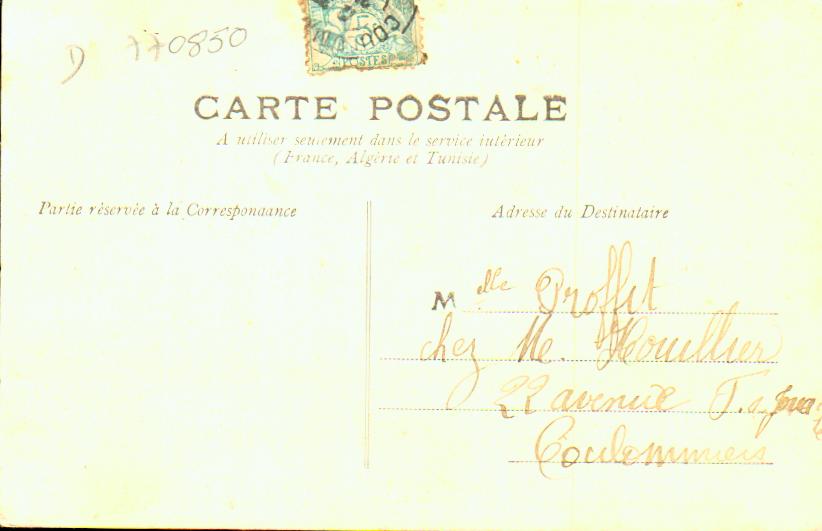 D 770850
POSTES
CARTE POSTALE
A utiliser seulement dans le service intérieur
(France, Algérie et Tunisie)
Partie réservée à la Correspondance
Adresse du Destinataire
Melle Proffit
chez Me. Houllier
22 avenue
Coulommiers